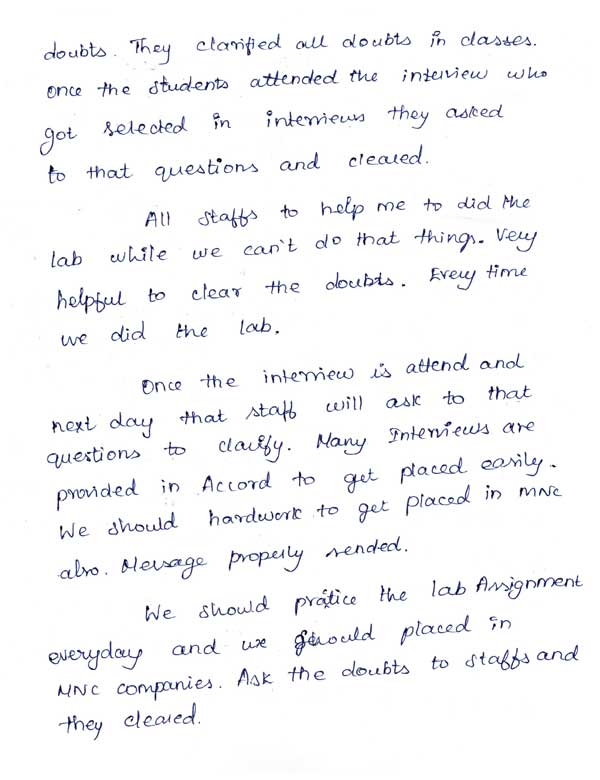 doubts. They clarified all doubts in classes.
once the students attended the interview who
got selected in interviews they asked
to that questions and cleared.
All staffs to help me to did the
lab while we can't do that things. Very
helpful to clear the doubts. Every time
we did the lab.
Once the interview is attend and
next day that staff will ask to that
questions to clarify. Many Interviews are
provided in Accord to get placed easily.
We should hardwork to get placed in MNC
also. Message properly sended.
We should pratice the lab Assignment
everyday and we should placed in
MNC companies. Ask the doubts to staffs and
they cleared.